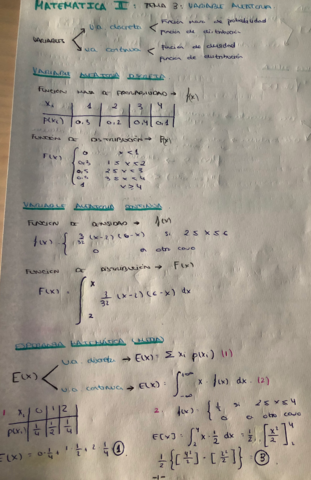 MATEMÁTICA II: TEMA 3: VARIABLE ALEATORIA
VARIABLES
v.a. discreta
Función masa de probabilidad
función de distribución
v.a. continua
función de densidad
función de distribución
VARIABLE ALEATORIA DISCRETA
FUNCIÓN MASA DE PROBABILIDAD → f(x)
xi 1 2 3 4
p(xi) 0,3 0,2 0,4 0,1
FUNCIÓN DE DISTRIBUCIÓN → F(x)
F(x) {
0 x < 1
0,3 1 ≤ x < 2
0,5 2 ≤ x < 3
3 ≤ x < 4
1 x ≥ 4
VARIABLE ALEATORIA CONTINUA
FUNCIÓN DE DENSIDAD → f(x)
f(x) = { 3/32 (x-2)(6-x) si 2 ≤ x ≤ 6
0 en otro caso
FUNCIÓN DE DISTRIBUCIÓN → F(x)
F(x) = ∫ 2 x 3/32 (x-2)(6-x) dx
ESPERANZA MATEMÁTICA (MEDIA)
E(x)
v.a. discreta → E(x) = Σ xi p(xi) (1)
v.a. continua → E(x) = ∫ x · f(x) dx. (2)
xi 0 1 2
p(xi) 1/4 1/2 1/4
E(x) = 0·1/4 + 1·1/2 + 2·1/4 = 1
2. f(x) = { 1/2 si 2 ≤ x ≤ 4
0 en otro caso
E(x) = ∫ x · 1/2 dx = 1/2 · [x²/2] 4 2
1/2 {[4²/2] - [2²/2]} = 3